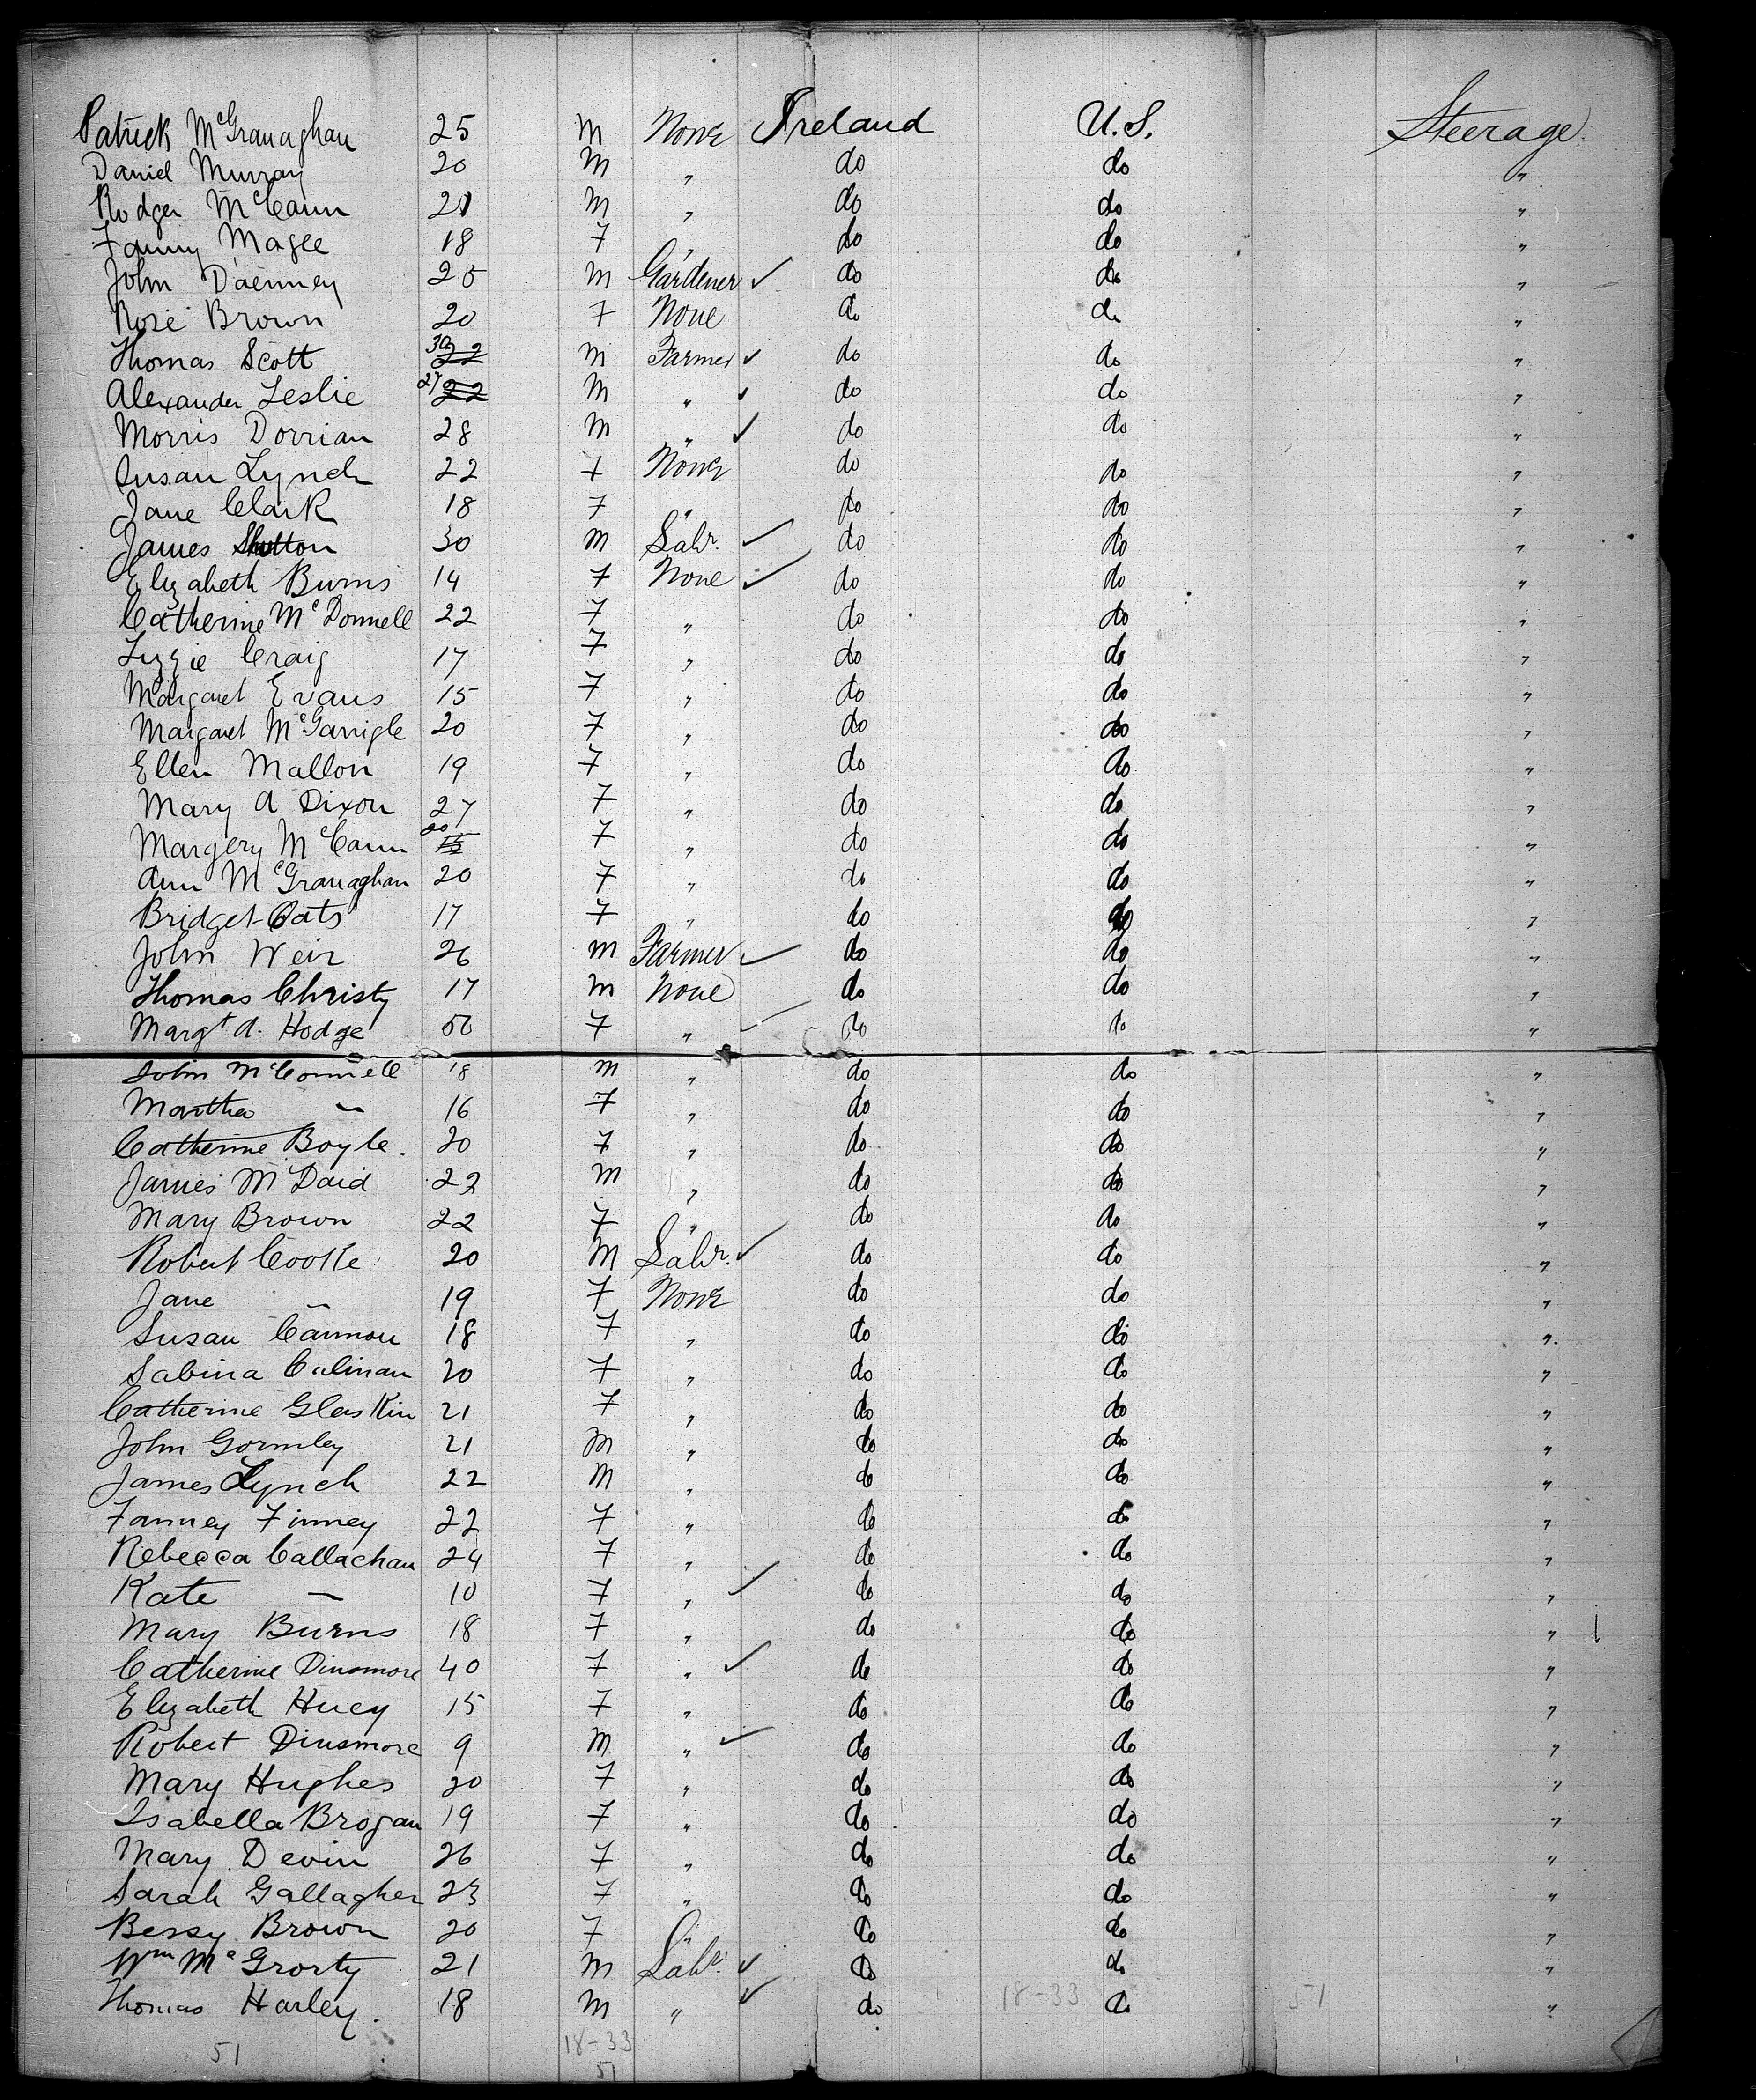 Patrick McGranaghan 25 M None Ireland U.S. Steerage
Daniel Murray 20 M " do do "
Rodger McCann 21 M " do do "
Fanny Magee 18 F " do do "
John 25 M Gardener ✓ do do "
Rose Brown 20 F None do do "
Thomas Scott 30 22 M Farmer ✓ do do "
Alexander Leslie 27 22 M " ✓ do do "
Morris Dorrian 28 M " ✓ do do "
Susan Lynch 22 F None do do "
Jane Clark 18 F " do do "
James 30 M Labr. ✓ do do "
Elizabeth Burns 14 F None ✓ do do "
Catherine McDonnell 22 F " do do "
Lizzie Craig 17 F " do do "
Margaret Evans 15 F " do do "
Margaret McGarrigle 20 F " do do "
Ellen Mallon 19 F " do do "
Mary A Dixon 27 F " do do "
Margery McCann 20 F " do do "
Ann McGranaghan 20 F " do do "
Bridget Oats 17 F " do do "
John Weir 26 M Farmer ✓ do do "
Thomas Christy 17 M None do do "
Margt A. Hodge 50 F " ✓ do do "
John McConnell 18 M " do do "
Martha " 16 F " do do "
Catherine Boyle. 20 F " do do "
James McDaid 22 M " do do "
Mary Brown 22 F " do do "
Robert Cooke 20 M Labr. ✓ do do "
Jane " 19 F None do do "
Susan Cannon 18 F " do do "
Sabina Culinan 20 F " do do "
Catherine Glaskin 21 F " do do "
John Gormley 21 M " do do "
James Lynch 22 M " do do "
Fanney Finney 22 F " do do "
Rebecca Callachan 24 F " do do "
Kate — 10 F " ✓ do do "
Mary Burns 18 F " do do "
Catherine Dinsmore 40 F " ✓ do do "
Elizabeth Huey 15 F " do do "
Robert Dinsmore 9 M " ✓ do do "
Mary Hughes 20 F " do do "
Isabella Brogan 19 F " do do "
Mary Devin 26 F " do do "
Sarah Gallagher 23 F " do do "
Bessy Brown 20 F " do do "
Wm McGrorty 21 M Labr. ✓ do do "
Thomas Harley. 18 M " ✓ do 18-33 do 51 "
51 18-33
51